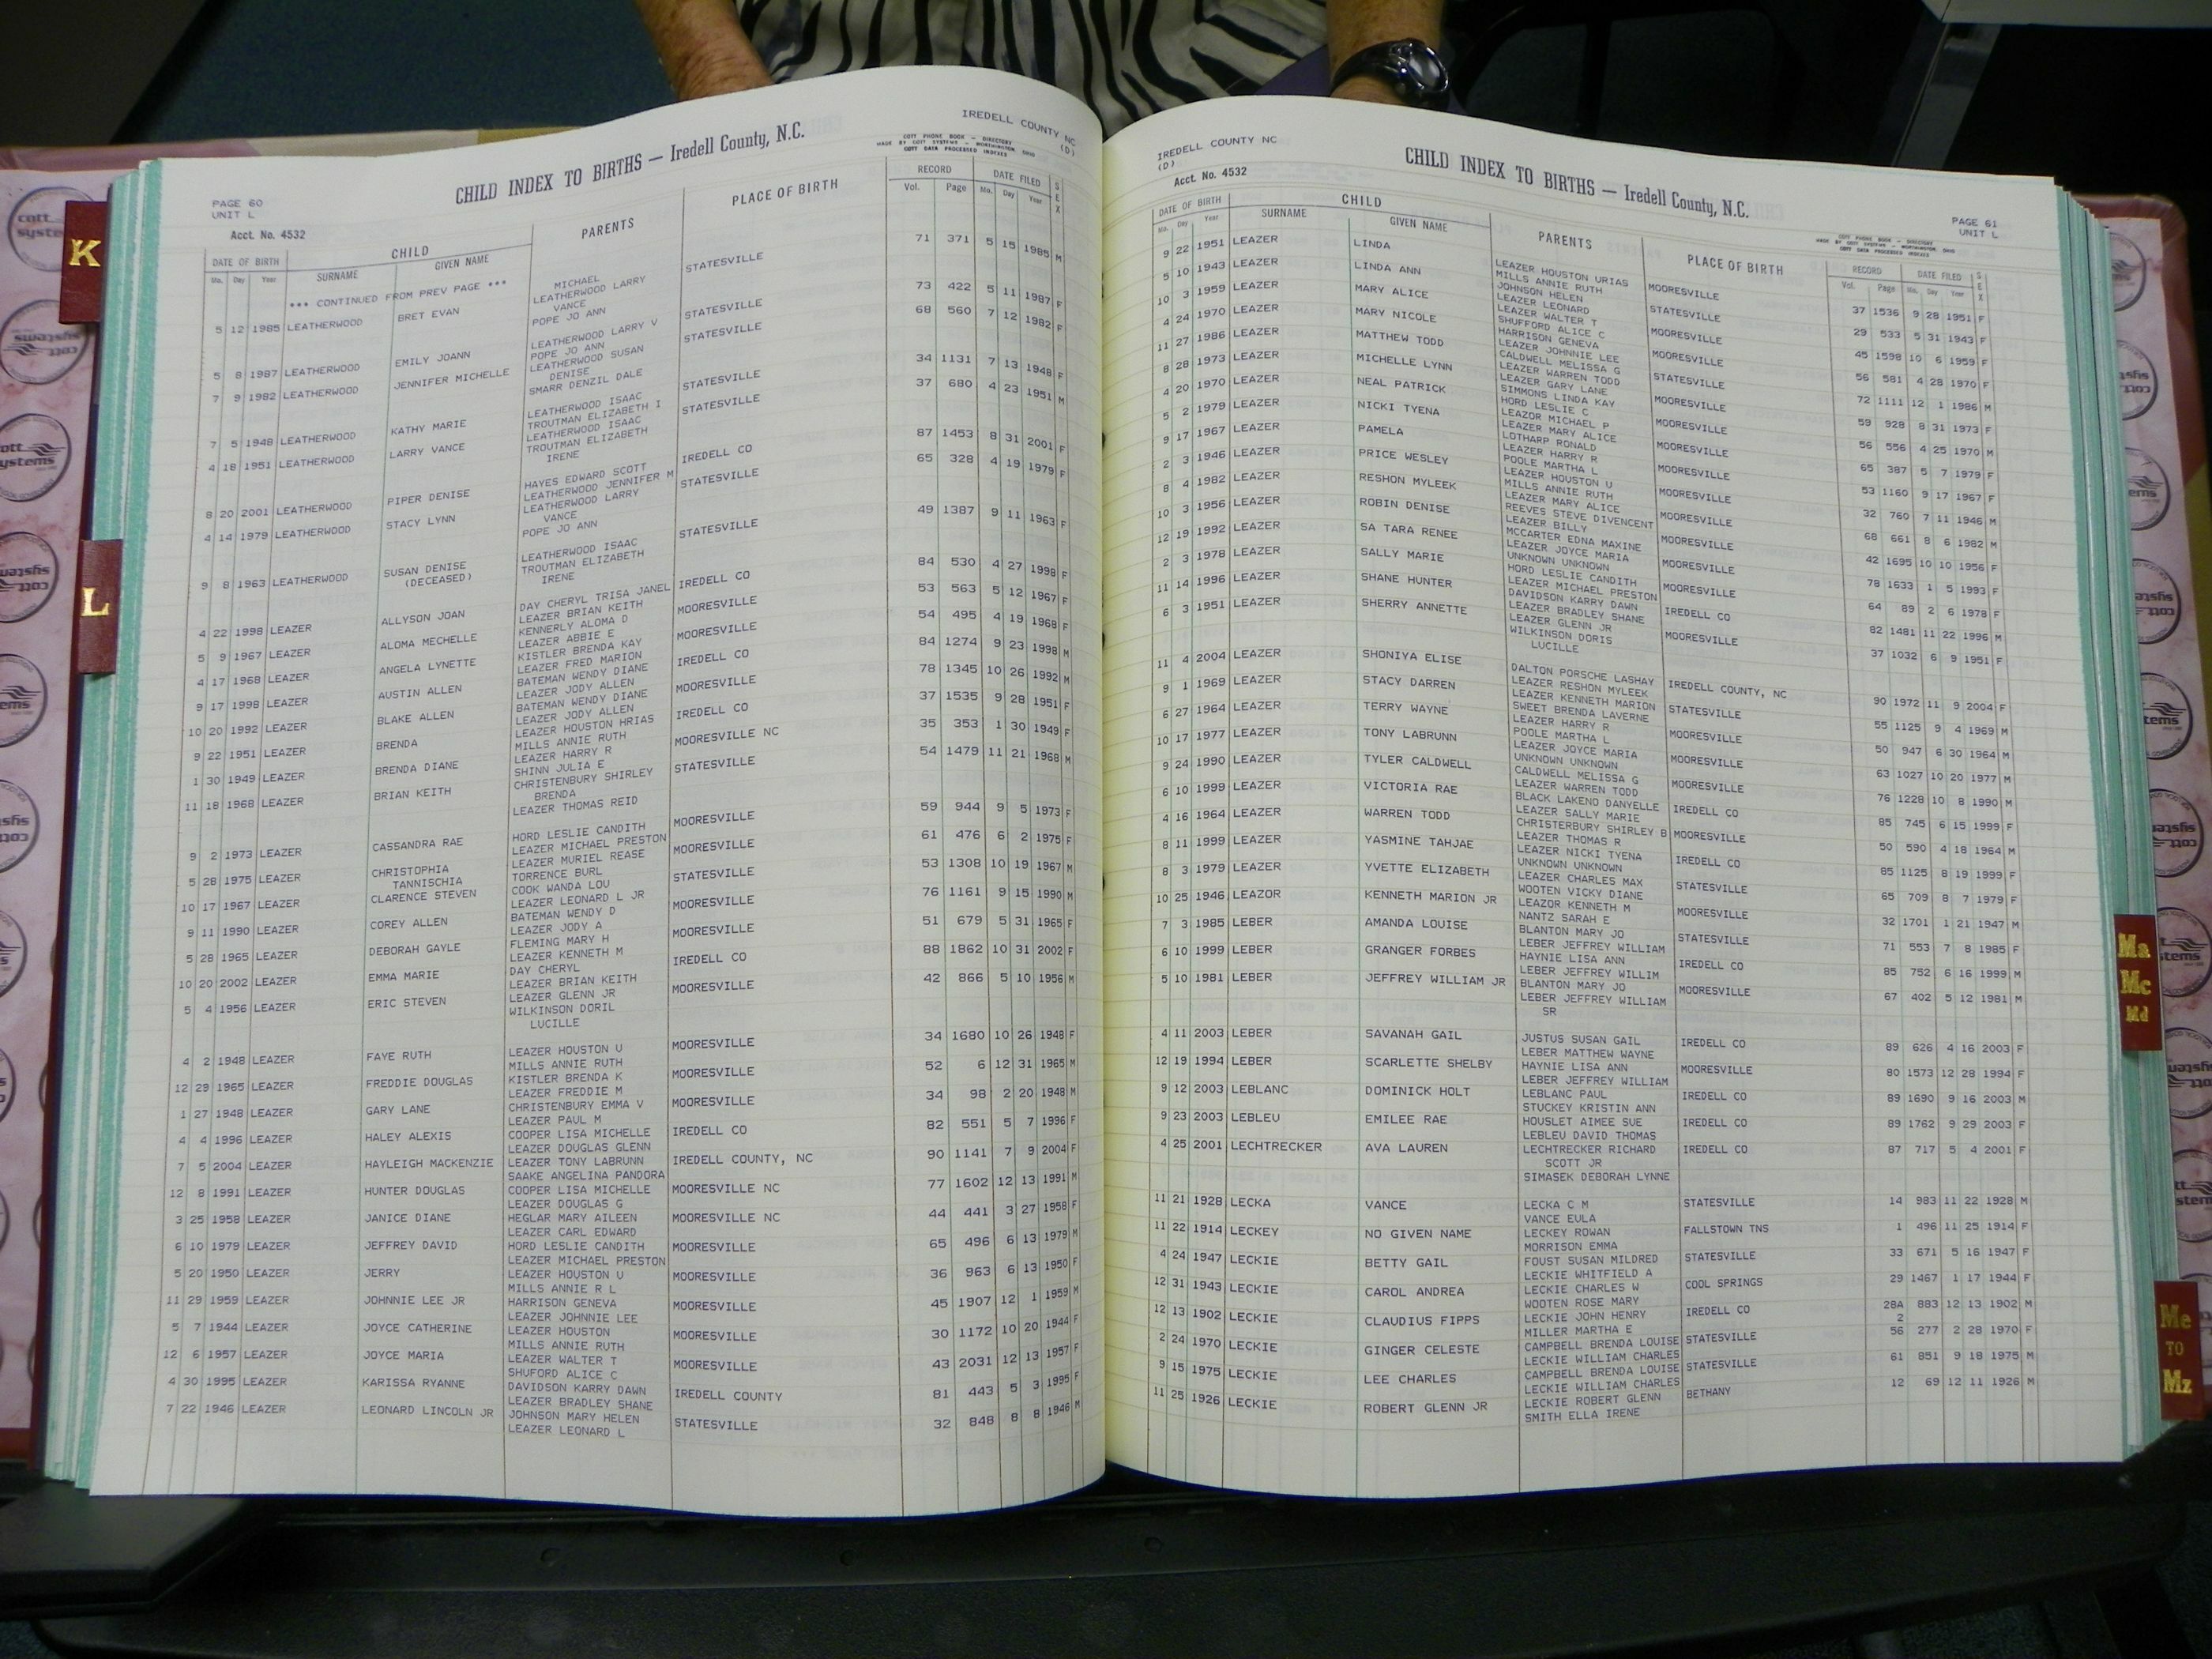 IREDELL COUNTY NC
(D)
CHILD INDEX TO BIRTHS — Iredell County, N.C.
COTT PHONE BOOK - DIRECTORY
MADE BY COTT SYSTEMS - WORTHINGTON, OHIO
COTT DATA PROCESSED INDEXES
PAGE 60
UNIT L
Acct. No. 4532
DATE OF BIRTH CHILD PARENTS PLACE OF BIRTH RECORD DATE FILED SEX
Mo. Day Year SURNAME GIVEN NAME Vol. Page Mo. Day Year
*** CONTINUED FROM PREV PAGE ***
MICHAEL
5 12 1985 LEATHERWOOD BRET EVAN LEATHERWOOD LARRY STATESVILLE 71 371 5 15 1985 M
VANCE
POPE JO ANN
5 8 1987 LEATHERWOOD EMILY JOANN LEATHERWOOD LARRY V STATESVILLE 73 422 5 11 1987 F
POPE JO ANN
7 9 1982 LEATHERWOOD JENNIFER MICHELLE LEATHERWOOD SUSAN STATESVILLE 68 560 7 12 1982 F
DENISE
SMARR DENZIL DALE
7 5 1948 LEATHERWOOD KATHY MARIE LEATHERWOOD ISAAC STATESVILLE 34 1131 7 13 1948 F
TROUTMAN ELIZABETH I
4 18 1951 LEATHERWOOD LARRY VANCE LEATHERWOOD ISAAC STATESVILLE 37 680 4 23 1951 M
TROUTMAN ELIZABETH
IRENE
8 20 2001 LEATHERWOOD PIPER DENISE HAYES EDWARD SCOTT IREDELL CO 87 1453 8 31 2001 F
LEATHERWOOD JENNIFER M
4 14 1979 LEATHERWOOD STACY LYNN LEATHERWOOD LARRY STATESVILLE 65 328 4 19 1979 F
VANCE
POPE JO ANN
9 8 1963 LEATHERWOOD SUSAN DENISE LEATHERWOOD ISAAC STATESVILLE 49 1387 9 11 1963 F
(DECEASED) TROUTMAN ELIZABETH
IRENE
4 22 1998 LEAZER ALLYSON JOAN DAY CHERYL TRISA JANEL IREDELL CO 84 530 4 27 1998 F
LEAZER BRIAN KEITH
5 9 1967 LEAZER ALOMA MECHELLE KENNERLY ALOMA D MOORESVILLE 53 563 5 12 1967 F
LEAZER ABBIE E
4 17 1968 LEAZER ANGELA LYNETTE KISTLER BRENDA KAY MOORESVILLE 54 495 4 19 1968 F
LEAZER FRED MARION
9 17 1998 LEAZER AUSTIN ALLEN BATEMAN WENDY DIANE IREDELL CO 84 1274 9 23 1998 M
LEAZER JODY ALLEN
10 20 1992 LEAZER BLAKE ALLEN BATEMAN WENDY DIANE MOORESVILLE 78 1345 10 26 1992 M
LEAZER JODY ALLEN
9 22 1951 LEAZER BRENDA LEAZER HOUSTON HRIAS IREDELL CO 37 1535 9 28 1951 F
MILLS ANNIE RUTH
1 30 1949 LEAZER BRENDA DIANE LEAZER HARRY R MOORESVILLE NC 35 353 1 30 1949 F
SHINN JULIA E
11 18 1968 LEAZER BRIAN KEITH CHRISTENBURY SHIRLEY STATESVILLE 54 1479 11 21 1968 M
BRENDA
LEAZER THOMAS REID
9 2 1973 LEAZER CASSANDRA RAE HORD LESLIE CANDITH MOORESVILLE 59 944 9 5 1973 F
LEAZER MICHAEL PRESTON
5 28 1975 LEAZER CHRISTOPHIA LEAZER MURIEL REASE MOORESVILLE 61 476 6 2 1975 F
TANNISCHIA TORRENCE BURL
10 17 1967 LEAZER CLARENCE STEVEN COOK WANDA LOU STATESVILLE 53 1308 10 19 1967 M
LEAZER LEONARD L JR
9 11 1990 LEAZER COREY ALLEN BATEMAN WENDY D MOORESVILLE 76 1161 9 15 1990 M
LEAZER JODY A
5 28 1965 LEAZER DEBORAH GAYLE FLEMING MARY H MOORESVILLE 51 679 5 31 1965 F
LEAZER KENNETH M
10 20 2002 LEAZER EMMA MARIE DAY CHERYL IREDELL CO 88 1862 10 31 2002 F
LEAZER BRIAN KEITH
5 4 1956 LEAZER ERIC STEVEN LEAZER GLENN JR MOORESVILLE 42 866 5 10 1956 M
WILKINSON DORIL
LUCILLE
4 2 1948 LEAZER FAYE RUTH LEAZER HOUSTON U MOORESVILLE 34 1680 10 26 1948 F
MILLS ANNIE RUTH
12 29 1965 LEAZER FREDDIE DOUGLAS KISTLER BRENDA K MOORESVILLE 52 6 12 31 1965 M
LEAZER FREDDIE M
1 27 1948 LEAZER GARY LANE CHRISTENBURY EMMA V MOORESVILLE 34 98 2 20 1948 M
LEAZER PAUL M
4 4 1996 LEAZER HALEY ALEXIS COOPER LISA MICHELLE IREDELL CO 82 551 5 7 1996 F
LEAZER DOUGLAS GLENN
7 5 2004 LEAZER HAYLEIGH MACKENZIE LEAZER TONY LABRUNN IREDELL COUNTY, NC 90 1141 7 9 2004 F
SAAKE ANGELINA PANDORA
12 8 1991 LEAZER HUNTER DOUGLAS COOPER LISA MICHELLE MOORESVILLE NC 77 1602 12 13 1991 M
LEAZER DOUGLAS G
3 25 1958 LEAZER JANICE DIANE HEGLAR MARY AILEEN MOORESVILLE NC 44 441 3 27 1958 F
LEAZER CARL EDWARD
6 10 1979 LEAZER JEFFREY DAVID HORD LESLIE CANDITH MOORESVILLE 65 496 6 13 1979 M
LEAZER MICHAEL PRESTON
5 20 1950 LEAZER JERRY LEAZER HOUSTON U MOORESVILLE 36 963 6 13 1950 F
MILLS ANNIE R L
11 29 1959 LEAZER JOHNNIE LEE JR HARRISON GENEVA MOORESVILLE 45 1907 12 1 1959 M
LEAZER JOHNNIE LEE
5 7 1944 LEAZER JOYCE CATHERINE LEAZER HOUSTON MOORESVILLE 30 1172 10 20 1944 F
MILLS ANNIE RUTH
12 6 1957 LEAZER JOYCE MARIA LEAZER WALTER T MOORESVILLE 43 2031 12 13 1957 F
SHUFORD ALICE C
4 30 1995 LEAZER KARISSA RYANNE DAVIDSON KARRY DAWN IREDELL COUNTY 81 443 5 3 1995 F
LEAZER BRADLEY SHANE
7 22 1946 LEAZER LEONARD LINCOLN JR JOHNSON MARY HELEN STATESVILLE 32 848 8 8 1946 M
LEAZER LEONARD L
IREDELL COUNTY NC
(D)
Acct. No. 4532
CHILD INDEX TO BIRTHS — Iredell County, N.C.
PAGE 61
UNIT L
COTT PHONE BOOK - DIRECTORY
MADE BY COTT SYSTEMS - WORTHINGTON, OHIO
COTT DATA PROCESSED INDEXES
DATE OF BIRTH CHILD PARENTS PLACE OF BIRTH RECORD DATE FILED SEX
Mo. Day Year SURNAME GIVEN NAME Vol. Page Mo. Day Year
9 22 1951 LEAZER LINDA LEAZER HOUSTON URIAS MOORESVILLE 37 1536 9 28 1951 F
MILLS ANNIE RUTH
5 10 1943 LEAZER LINDA ANN JOHNSON HELEN STATESVILLE 29 533 5 31 1943 F
LEAZER LEONARD
10 3 1959 LEAZER MARY ALICE LEAZER WALTER T MOORESVILLE 45 1598 10 6 1959 F
SHUFFORD ALICE C
4 24 1970 LEAZER MARY NICOLE HARRISON GENEVA MOORESVILLE 56 581 4 28 1970 F
LEAZER JOHNNIE LEE
11 27 1986 LEAZER MATTHEW TODD CALDWELL MELISSA G STATESVILLE 72 1111 12 1 1986 M
LEAZER WARREN TODD
8 28 1973 LEAZER MICHELLE LYNN LEAZER GARY LANE MOORESVILLE 59 928 8 31 1973 F
SIMMONS LINDA KAY
4 20 1970 LEAZER NEAL PATRICK HORD LESLIE C MOORESVILLE 56 556 4 25 1970 M
LEAZOR MICHAEL P
5 2 1979 LEAZER NICKI TYENA LEAZER MARY ALICE MOORESVILLE 65 387 5 7 1979 F
LOTHARP RONALD
9 17 1967 LEAZER PAMELA LEAZER HARRY R MOORESVILLE 53 1160 9 17 1967 F
POOLE MARTHA L
2 3 1946 LEAZER PRICE WESLEY LEAZER HOUSTON U MOORESVILLE 32 760 7 11 1946 M
MILLS ANNIE RUTH
8 4 1982 LEAZER RESHON MYLEEK LEAZER MARY ALICE MOORESVILLE 68 661 8 6 1982 M
REEVES STEVE DIVENCENT
10 3 1956 LEAZER ROBIN DENISE LEAZER BILLY MOORESVILLE 42 1695 10 10 1956 F
MCCARTER EDNA MAXINE
12 19 1992 LEAZER SA TARA RENEE LEAZER JOYCE MARIA 78 1633 1 5 1993 F
UNKNOWN UNKNOWN
2 3 1978 LEAZER SALLY MARIE HORD LESLIE CANDITH MOORESVILLE 64 89 2 6 1978 F
LEAZER MICHAEL PRESTON
11 14 1996 LEAZER SHANE HUNTER DAVIDSON KARRY DAWN IREDELL CO 82 1481 11 22 1996 M
LEAZER BRADLEY SHANE
6 3 1951 LEAZER SHERRY ANNETTE LEAZER GLENN JR MOORESVILLE 37 1032 6 9 1951 F
WILKINSON DORIS
LUCILLE
11 4 2004 LEAZER SHONIYA ELISE DALTON PORSCHE LASHAY IREDELL COUNTY, NC 90 1972 11 9 2004 F
LEAZER RESHON MYLEEK
9 1 1969 LEAZER STACY DARREN LEAZER KENNETH MARION STATESVILLE 55 1125 9 4 1969 M
SWEET BRENDA LAVERNE
6 27 1964 LEAZER TERRY WAYNE LEAZER HARRY R MOORESVILLE 50 947 6 30 1964 M
POOLE MARTHA L
10 17 1977 LEAZER TONY LABRUNN LEAZER JOYCE MARIA MOORESVILLE 63 1027 10 20 1977 M
UNKNOWN UNKNOWN
9 24 1990 LEAZER TYLER CALDWELL CALDWELL MELISSA G MOORESVILLE 76 1228 10 8 1990 M
LEAZER WARREN TODD
6 10 1999 LEAZER VICTORIA RAE BLACK LAKENO DANYELLE IREDELL CO 85 745 6 15 1999 F
LEAZER SALLY MARIE
4 16 1964 LEAZER WARREN TODD CHRISTERBURY SHIRLEY B MOORESVILLE 50 590 4 18 1964 M
LEAZER THOMAS R
8 11 1999 LEAZER YASMINE TAHJAE LEAZER NICKI TYENA IREDELL CO 85 1125 8 19 1999 F
UNKNOWN UNKNOWN
8 3 1979 LEAZER YVETTE ELIZABETH LEAZER CHARLES MAX STATESVILLE 65 709 8 7 1979 F
WOOTEN VICKY DIANE
10 25 1946 LEAZOR KENNETH MARION JR LEAZOR KENNETH M MOORESVILLE 32 1701 1 21 1947 M
NANTZ SARAH E
7 3 1985 LEBER AMANDA LOUISE BLANTON MARY JO STATESVILLE 71 553 7 8 1985 F
LEBER JEFFREY WILLIAM
6 10 1999 LEBER GRANGER FORBES HAYNIE LISA ANN IREDELL CO 85 752 6 16 1999 M
LEBER JEFFREY WILLIM
5 10 1981 LEBER JEFFREY WILLIAM JR BLANTON MARY JO MOORESVILLE 67 402 5 12 1981 M
LEBER JEFFREY WILLIAM
SR
4 11 2003 LEBER SAVANAH GAIL JUSTUS SUSAN GAIL IREDELL CO 89 626 4 16 2003 F
LEBER MATTHEW WAYNE
12 19 1994 LEBER SCARLETTE SHELBY HAYNIE LISA ANN MOORESVILLE 80 1573 12 28 1994 F
LEBER JEFFREY WILLIAM
9 12 2003 LEBLANC DOMINICK HOLT LEBLANC PAUL IREDELL CO 89 1690 9 16 2003 M
STUCKEY KRISTIN ANN
9 23 2003 LEBLEU EMILEE RAE HOUSLET AIMEE SUE IREDELL CO 89 1762 9 29 2003 F
LEBLEU DAVID THOMAS
4 25 2001 LECHTRECKER AVA LAUREN LECHTRECKER RICHARD IREDELL CO 87 717 5 4 2001 F
SCOTT JR
SIMASEK DEBORAH LYNNE
11 21 1928 LECKA VANCE LECKA C M STATESVILLE 14 983 11 22 1928 M
VANCE EULA
11 22 1914 LECKEY NO GIVEN NAME LECKEY ROWAN FALLSTOWN TNS 1 496 11 25 1914 F
MORRISON EMMA
4 24 1947 LECKIE BETTY GAIL FOUST SUSAN MILDRED STATESVILLE 33 671 5 16 1947 F
LECKIE WHITFIELD A
12 31 1943 LECKIE CAROL ANDREA LECKIE CHARLES W COOL SPRINGS 29 1467 1 17 1944 F
WOOTEN ROSE MARY
12 13 1902 LECKIE CLAUDIUS FIPPS LECKIE JOHN HENRY IREDELL CO 28A 883 12 13 1902 M
MILLER MARTHA E 2
2 24 1970 LECKIE GINGER CELESTE CAMPBELL BRENDA LOUISE STATESVILLE 56 277 2 28 1970 F
LECKIE WILLIAM CHARLES
9 15 1975 LECKIE LEE CHARLES CAMPBELL BRENDA LOUISE STATESVILLE 61 851 9 18 1975 M
LECKIE WILLIAM CHARLES
11 25 1926 LECKIE ROBERT GLENN JR LECKIE ROBERT GLENN BETHANY 12 69 12 11 1926 M
SMITH ELLA IRENE
K
L
Ma
Mc
Md
Me
TO
Mz
cott
systems